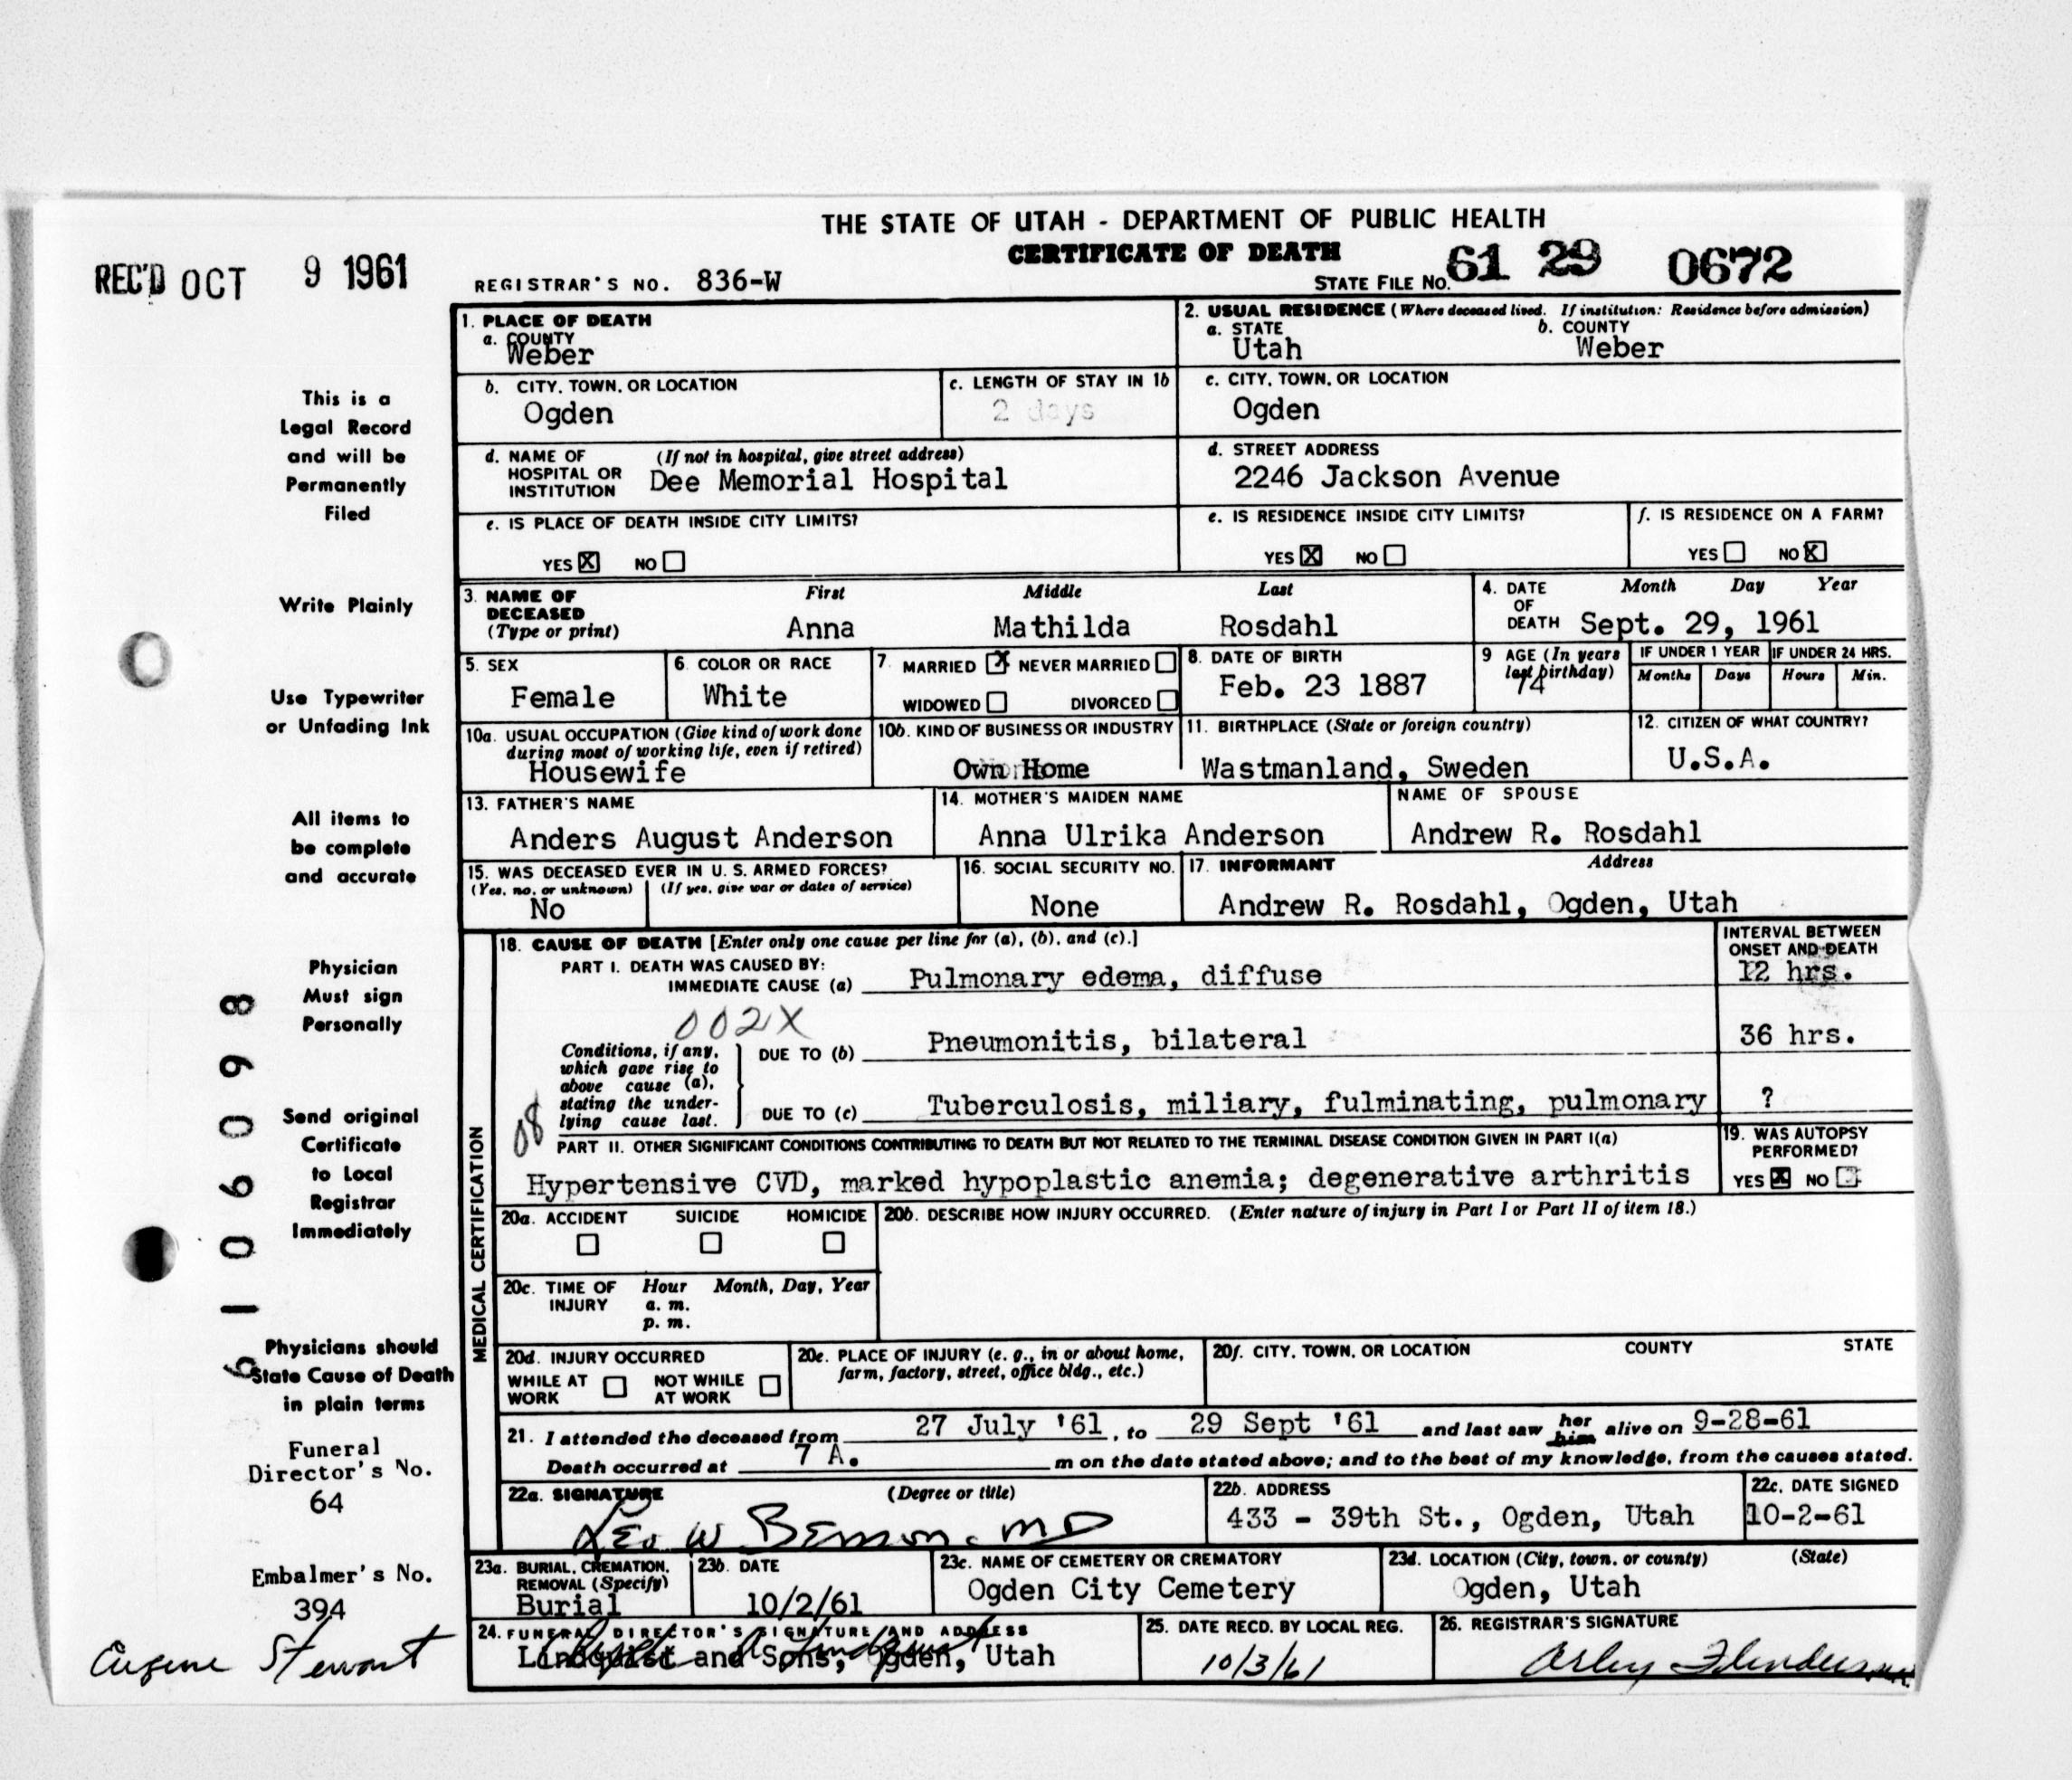 THE STATE OF UTAH - DEPARTMENT OF PUBLIC HEALTH
CERTIFICATE OF DEATH
REC'D OCT 9 1961
REGISTRAR'S NO. 836-W
STATE FILE NO. 61 29 0672
1. PLACE OF DEATH
a. COUNTY
Weber
2. USUAL RESIDENCE (Where deceased lived. If institution: Residence before admission)
a. STATE b. COUNTY
Utah Weber
b. CITY, TOWN, OR LOCATION
Ogden
c. LENGTH OF STAY IN 1b
2 days
c. CITY, TOWN, OR LOCATION
Ogden
d. NAME OF (If not in hospital, give street address)
HOSPITAL OR
INSTITUTION Dee Memorial Hospital
d. STREET ADDRESS
2246 Jackson Avenue
e. IS PLACE OF DEATH INSIDE CITY LIMITS?
YES X NO
e. IS RESIDENCE INSIDE CITY LIMITS?
YES X NO
f. IS RESIDENCE ON A FARM?
YES NO X
3. NAME OF First Middle Last
DECEASED
(Type or print) Anna Mathilda Rosdahl
4. DATE Month Day Year
OF
DEATH Sept. 29, 1961
5. SEX
Female
6. COLOR OR RACE
White
7. MARRIED X NEVER MARRIED
WIDOWED DIVORCED
8. DATE OF BIRTH
Feb. 23 1887
9 AGE (In years
last birthday)
74
IF UNDER 1 YEAR IF UNDER 24 HRS.
Months Days Hours Min.
10a. USUAL OCCUPATION (Give kind of work done
during most of working life, even if retired)
Housewife
10b. KIND OF BUSINESS OR INDUSTRY
Own Home
11. BIRTHPLACE (State or foreign country)
Wastmanland, Sweden
12. CITIZEN OF WHAT COUNTRY?
U.S.A.
13. FATHER'S NAME
Anders August Anderson
14. MOTHER'S MAIDEN NAME
Anna Ulrika Anderson
NAME OF SPOUSE
Andrew R. Rosdahl
15. WAS DECEASED EVER IN U. S. ARMED FORCES?
(Yes, no, or unknown) (If yes, give war or dates of service)
No
16. SOCIAL SECURITY NO.
None
17. INFORMANT Address
Andrew R. Rosdahl, Ogden, Utah
MEDICAL CERTIFICATION
18. CAUSE OF DEATH [Enter only one cause per line for (a), (b), and (c).]
INTERVAL BETWEEN
ONSET AND DEATH
PART I. DEATH WAS CAUSED BY:
IMMEDIATE CAUSE (a) Pulmonary edema, diffuse 12 hrs.
002X
Conditions, if any,
which gave rise to
above cause (a),
stating the under-
lying cause last.
DUE TO (b) Pneumonitis, bilateral 36 hrs.
DUE TO (c) Tuberculosis, miliary, fulminating, pulmonary ?
08
PART II. OTHER SIGNIFICANT CONDITIONS CONTRIBUTING TO DEATH BUT NOT RELATED TO THE TERMINAL DISEASE CONDITION GIVEN IN PART I(a)
Hypertensive CVD, marked hypoplastic anemia; degenerative arthritis
19. WAS AUTOPSY
PERFORMED?
YES X NO
20a. ACCIDENT SUICIDE HOMICIDE
20b. DESCRIBE HOW INJURY OCCURRED. (Enter nature of injury in Part I or Part II of item 18.)
20c. TIME OF Hour Month, Day, Year
INJURY a. m.
p. m.
20d. INJURY OCCURRED
WHILE AT NOT WHILE
WORK AT WORK
20e. PLACE OF INJURY (e. g., in or about home,
farm, factory, street, office bldg., etc.)
20f. CITY, TOWN, OR LOCATION COUNTY STATE
21. I attended the deceased from 27 July '61, to 29 Sept '61 and last saw her him alive on 9-28-61
Death occurred at 7 A. m on the date stated above; and to the best of my knowledge, from the causes stated.
22a. SIGNATURE (Degree or title)
Leo W Benson. MD
22b. ADDRESS
433 - 39th St., Ogden, Utah
22c. DATE SIGNED
10-2-61
23a. BURIAL, CREMATION,
REMOVAL (Specify)
Burial
23b. DATE
10/2/61
23c. NAME OF CEMETERY OR CREMATORY
Ogden City Cemetery
23d. LOCATION (City, town, or county) (State)
Ogden, Utah
24. FUNERAL DIRECTOR'S SIGNATURE AND ADDRESS
Lindquist and Sons, Ogden, Utah
25. DATE RECD. BY LOCAL REG.
10/3/61
26. REGISTRAR'S SIGNATURE
This is a
Legal Record
and will be
Permanently
Filed
Write Plainly
Use Typewriter
or Unfading Ink
All items to
be complete
and accurate
Physician
Must sign
Personally
Send original
Certificate
to Local
Registrar
Immediately
Physicians should
State Cause of Death
in plain terms
61 06098
Funeral
Director's No.
64
Embalmer's No.
394
Eugene Stewart